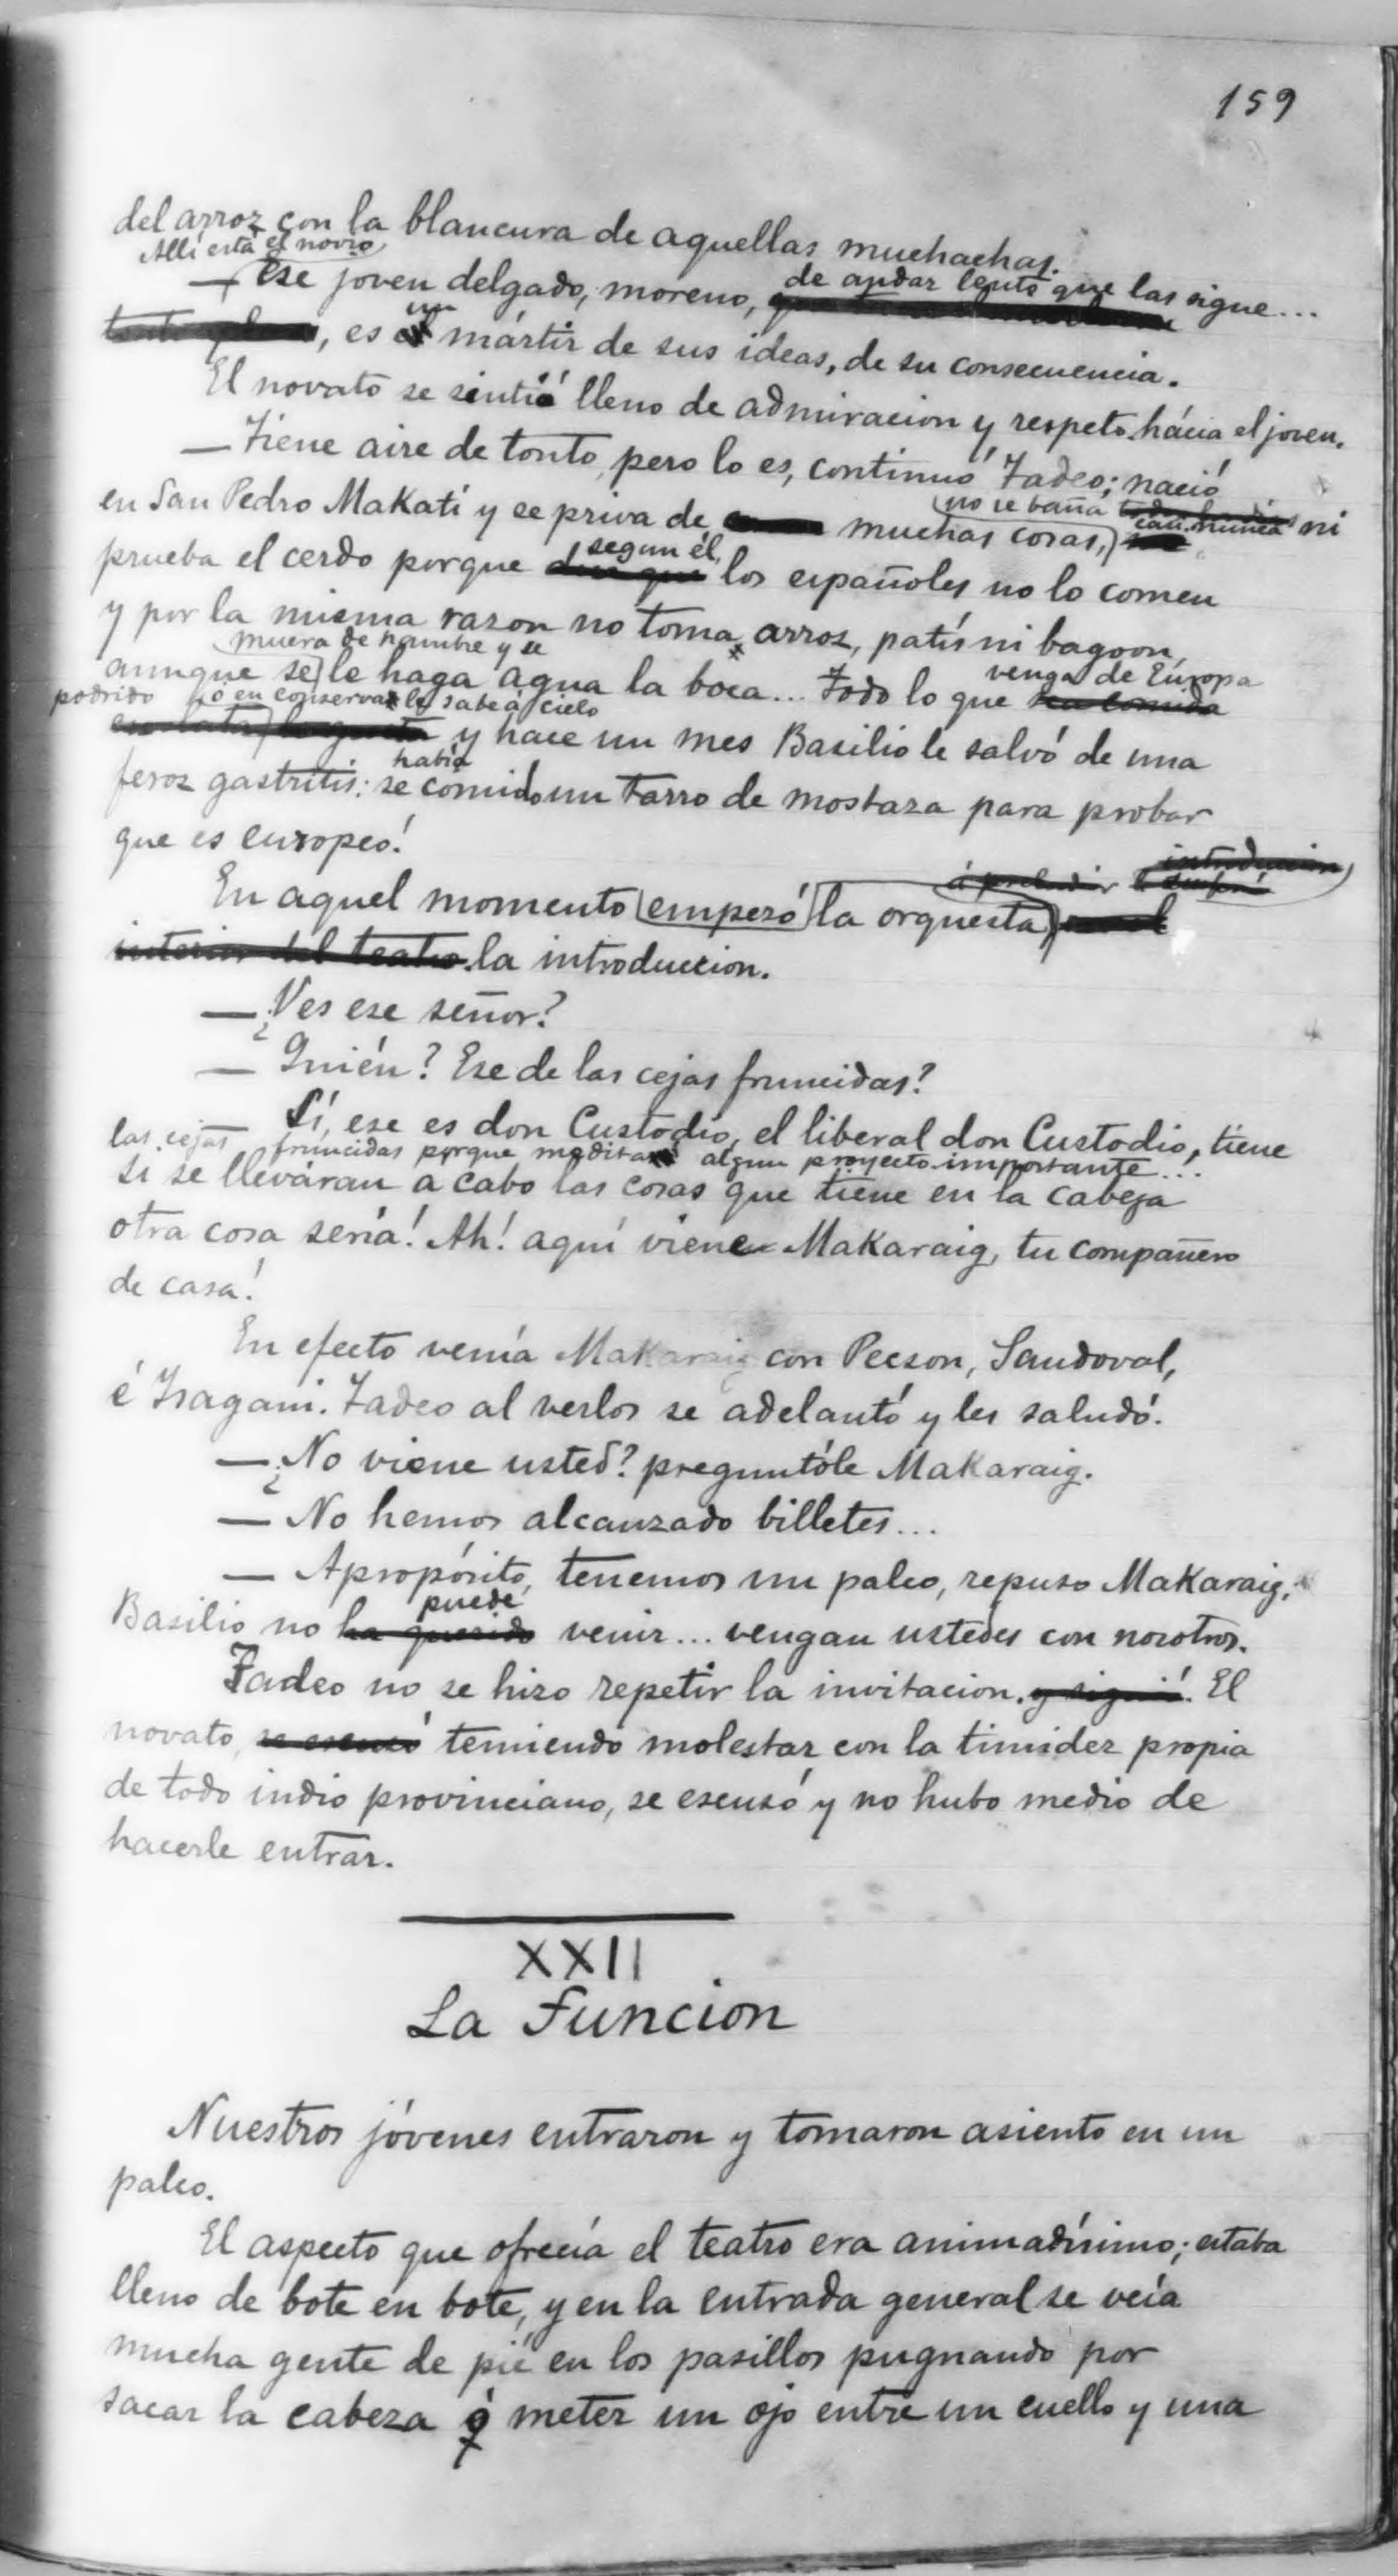 159
del arroz con la blancura de aquellas muchachas.
Allí está el novio,
— Ese joven delgado, moreno, de andar lento que las sigue...
, es un mártir de sus ideas, de su consecuencia.
El novato se sintió lleno de admiracion y respeto hácia el joven.
— Tiene aire de tonto, pero lo es, continuó Tadeo; nació
en San Pedro Makati y se priva de muchas cosas, no se baña casi nunca ni
prueba el cerdo porque segun él, los españoles no lo comen
y por la misma razon no toma arroz, patís ni bagoon,
muera de hambre y se
aunque se le haga agua la boca... Todo lo que venga de Europa
podrido ó en conserva le sabe á cielo
y hace un mes Basilio le salvó de una
feroz gastritis: se había comido un tarro de mostaza para probar
que es europeo!
En aquel momento empezó la orquesta
interior del teatro la introduccion.
— ¿Ves ese señor?
— Quién? Ese de las cejas fruncidas?
— Sí, ese es don Custodio, el liberal don Custodio, tiene
las cejas fruncidas porque medita algun proyecto importante...
si se lleváran a cabo las cosas que tiene en la cabeza
otra cosa sería! Ah! aquí viene Makaraig, tu compañero
de casa!
En efecto venía Makaraig con Pecson, Sandoval,
é Isagani. Tadeo al verlos se adelantó y les saludó.
— ¿No viene usted? preguntóle Makaraig.
— No hemos alcanzado billetes...
— Apropósito, tenemos un palco, repuso Makaraig,
Basilio no ha querido puede venir... vengan ustedes con nosotros.
Tadeo no se hizo repetir la invitacion. y siguió. El
novato, se escusó temiendo molestar, con la timidez propia
de todo indio provinciano, se escusó y no hubo medio de
hacerle entrar.
XXII
La Funcion
Nuestros jóvenes entraron y tomaron asiento en un
palco.
El aspecto que ofrecía el teatro era animadísimo; estaba
lleno de bote en bote, y en la entrada general se veía
mucha gente de pié en los pasillos pugnando por
sacar la cabeza ó meter un ojo entre un cuello y una